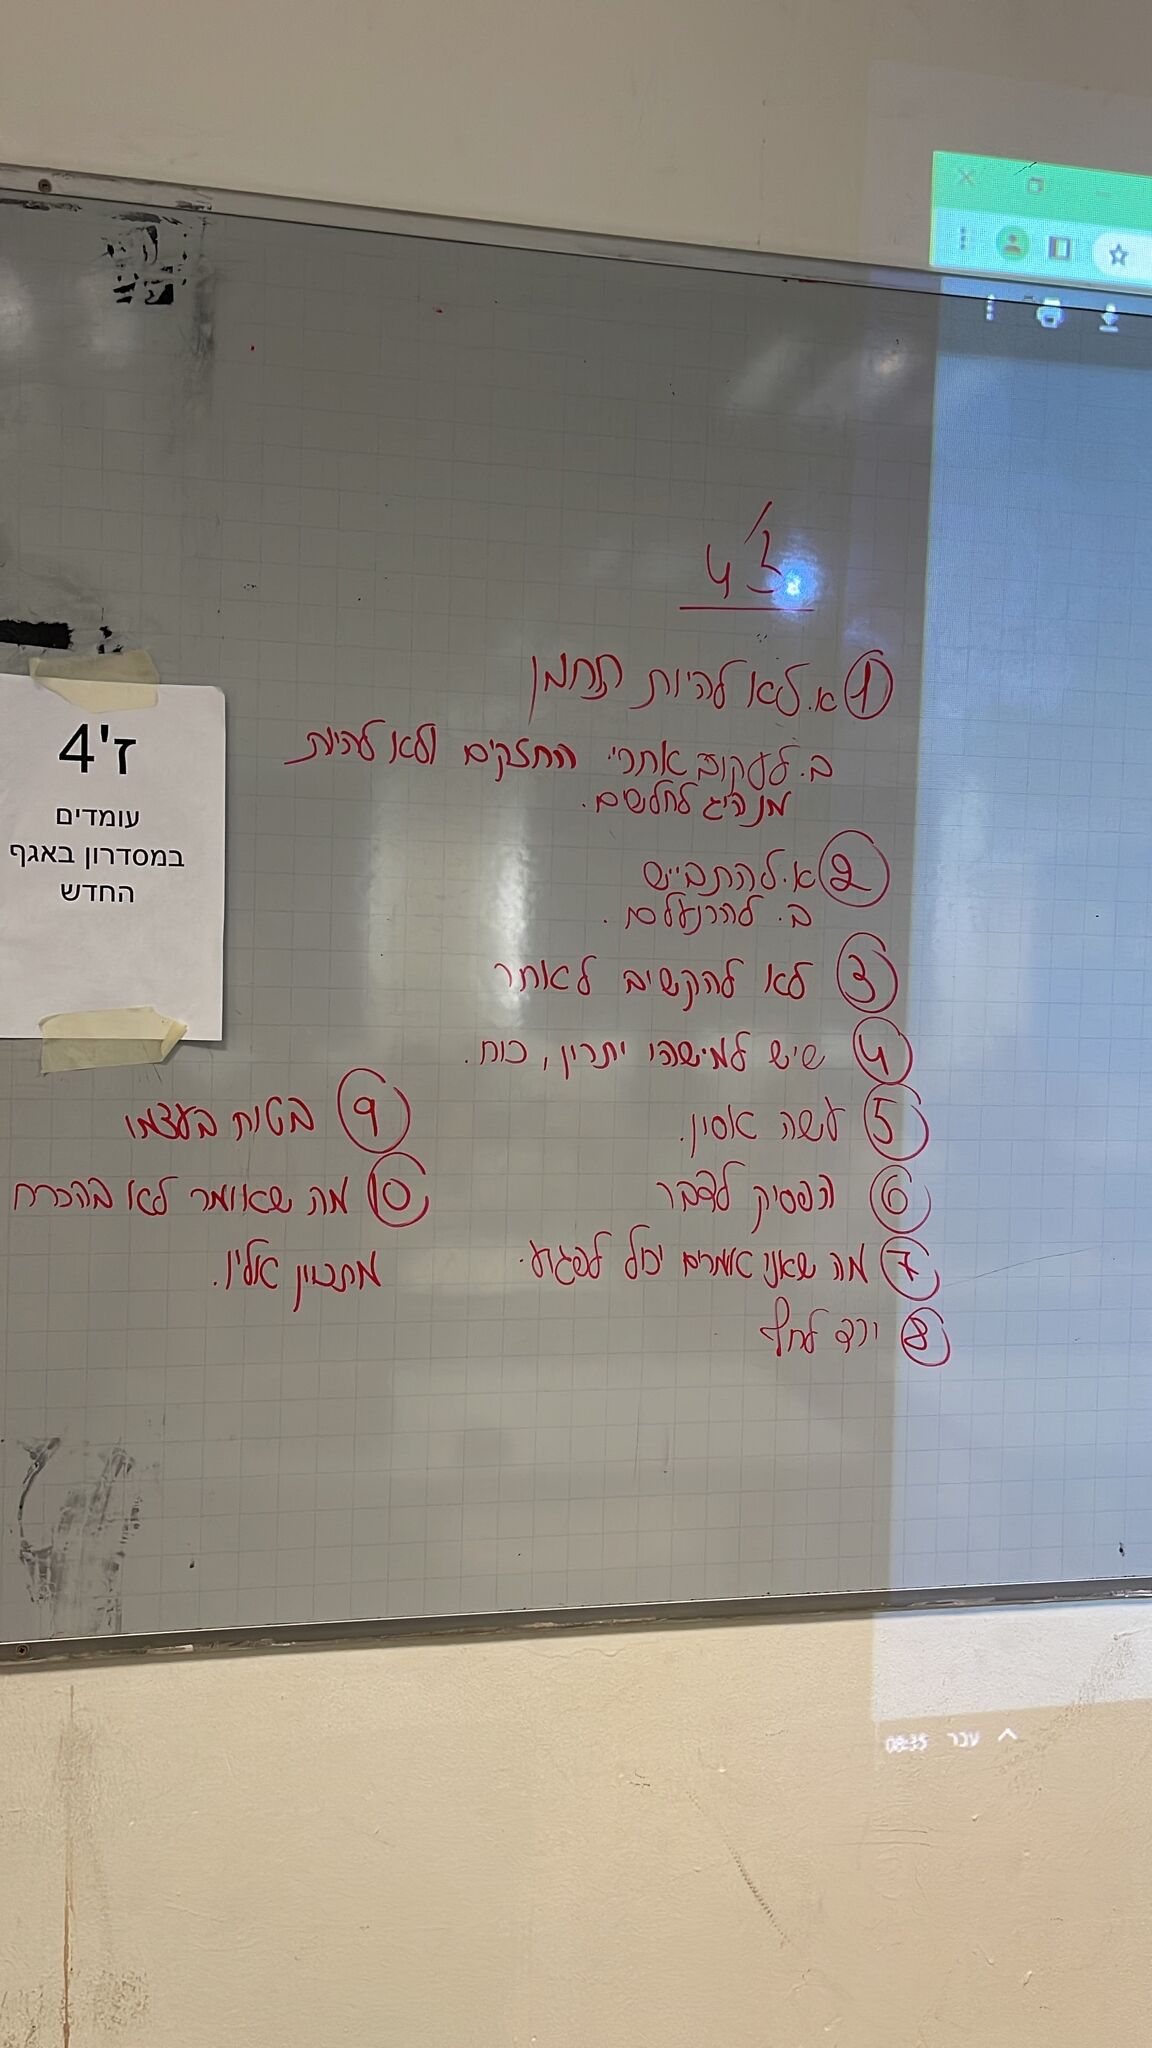 ז'4
1 א. לא להיות תחמן
ב. לעקוב אחרי החזקים ולא להיות
מנהיג לחלשים.
2 א. להתבייש
ב. להיעלם.
3 לא להקשיב לאחר
4 שיש למישהו יתרון, כוח.
5 עשה אסון.
6 הפסיק לדבר
7 מה שאני אומרים יכול לפגוע.
8 ירד לחוף
9 בטוח בעצמו
10 מה שאומר לא בהכרח
מתכוון אליו.
ז'4
עומדים
במסדרון באגף
החדש
08:35 עבר